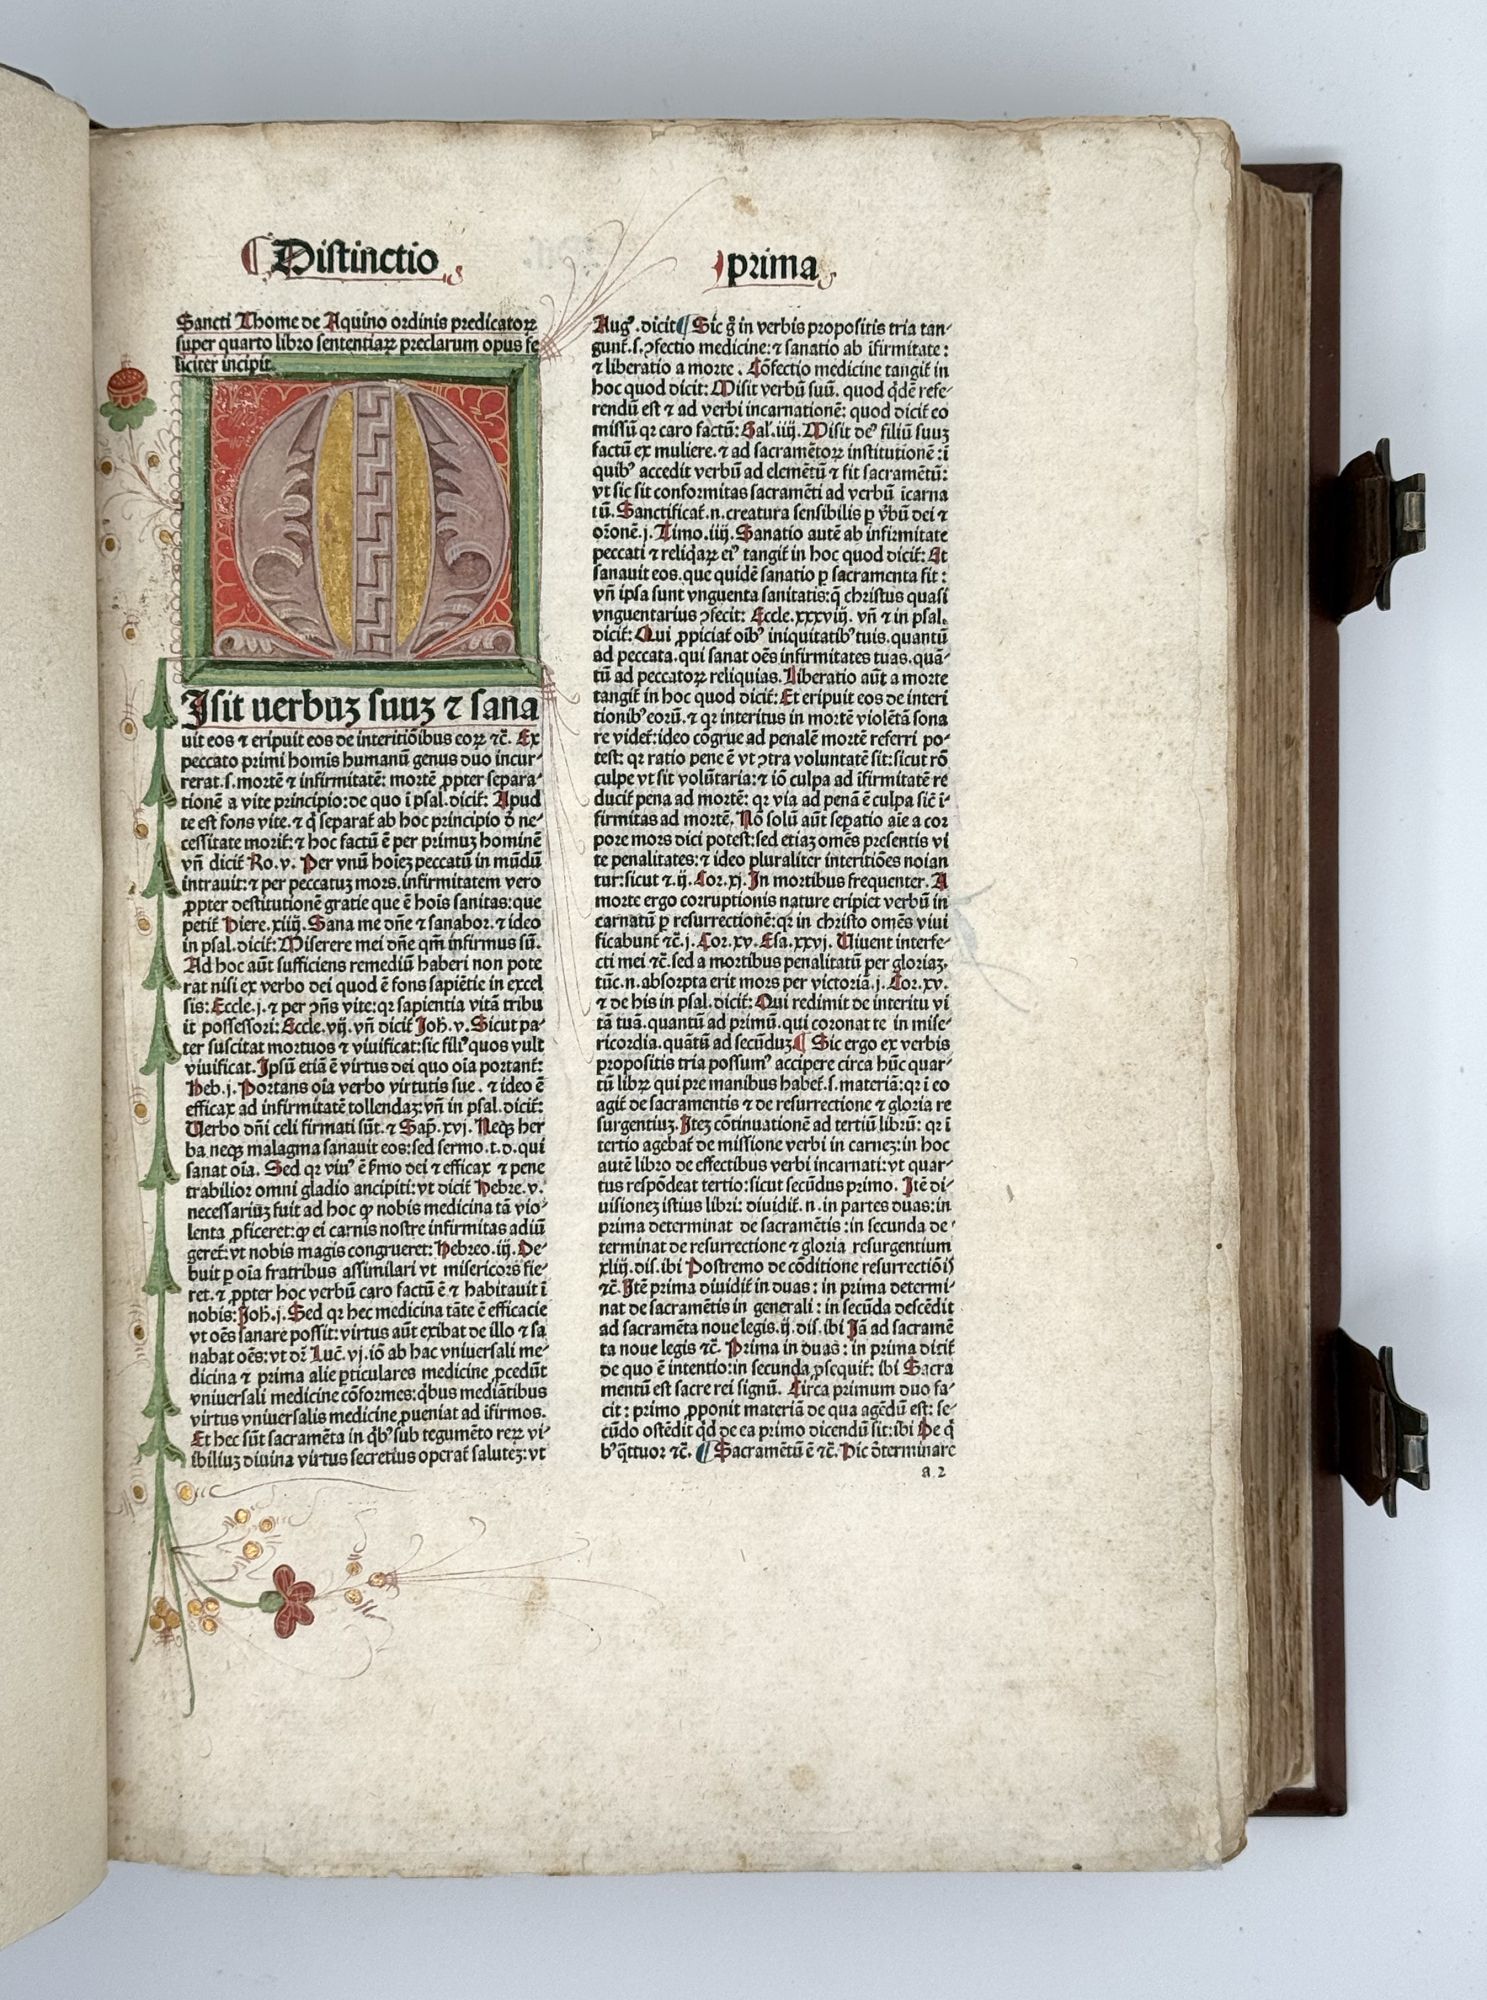 Distinctio
prima
Sancti Thome de Aquino ordinis predicatoꝝ
super quarto libro sententiaꝝ preclarum opus fe
liciter incipit.
M
Isit verbuz suuz ⁊ sana
uit eos ⁊ eripuit eos de interitiõibus eoꝝ ⁊c̃. Ex
peccato primi homis humanũ genus duo incur-
rerat.s.mortẽ ⁊ infirmitatẽ: mortẽ ꝓpter separa-
tionẽ a vite principio:de quo ĩ psal.dicit᷑: Apud
te est fons vite.⁊ q̇ separat᷑ ab hoc principio ⱺ ne-
cessitate morit᷑:⁊ hoc factũ ẽ per primuz hominẽ
vñ dicit᷑ Ro.v. Per vnũ hoiez peccatũ in mũdũ
intrauit:⁊ per peccatuz mors.infirmitatem vero
ꝓpter destitutionẽ gratie que ẽ hoĩs sanitas:que
petit᷑ Hiere.xiiij. Sana me dñe ⁊ sanabor.⁊ ideo
in psal.dicit᷑: Miserere mei dñe qm̃ infirmus sũ.
Ad hoc aũt sufficiens remediũ haberi non pote
rat nisi ex verbo dei quod ẽ fons sapiẽtie in excel
sis:Eccle.j.⁊ per ꝯñs vite:qꝛ sapientia vitã tribu
it possessori: Eccle.vij.vñ dicit᷑ Joh̃.v. Sicut pa-
ter suscitat mortuos ⁊ viuificat:sic filiꝰ quos vult
viuificat. Ipsũ etiã ẽ virtus dei quo oĩa portant᷑:
Heb.j. Portans oĩa verbo virtutis sue. ⁊ ideo ẽ
efficax ad infirmitatẽ tollendaz:vñ in psal.dicit᷑:
Uerbo dñi celi firmati sũt.⁊ Sap̃.xvj. Neqꝫ her
ba neqꝫ malagma sanauit eos:sed sermo.t.d.qui
sanat oĩa. Sed qꝛ viuꝰ ẽ s̃mo dei ⁊ efficax ⁊ pene
trabilior omni gladio ancipiti:vt dicit᷑ Hebre.v.
necessariuz fuit ad hoc ꝙ nobis medicina tã vio-
lenta ꝓficeret:ꝙ ei carnis nostre infirmitas adiũ
geret᷑:vt nobis magis congrueret: Hebreo.iij. De-
buit ꝑ oĩa fratribus assimilari vt misericors fie-
ret.⁊ ꝓpter hoc verbũ caro factũ ẽ ⁊ habitauit ĩ
nobis: Joh̃.j. Sed qꝛ hec medicina tãte ẽ efficacie
vt oẽs sanare possit:virtus aũt exibat de illo ⁊ sa
nabat oẽs:vt dꝛ̃ Luc̃.vj.iõ ab hac vniuersali me-
dicina ⁊ prima alie ꝑticulares medicine ꝓcedũt
vniuersali medicine cõformes:q̇bus mediãtibus
virtus vniuersalis medicine ꝓueniat ad ĩfirmos.
Et hec sũt sacramẽta in q̇bꝰ sub tegumẽto reꝝ vi-
sibiliuz diuina virtus secretius operat᷑ salutez:vt
Augꝰ.dicit ¶ Sic g̊ in verbis propositis tria tan-
gunt᷑.s.ꝯfectio medicine:⁊ sanatio ab ĩfirmitate:
⁊ liberatio a morte. Cõfectio medicine tangit᷑ in
hoc quod dicit: Misit verbũ suũ. quod q̇dẽ refe-
rendũ est ⁊ ad verbi incarnationẽ: quod dicit᷑ eo
missũ qꝛ caro factũ: Gal̃.iiij. Misit deꝰ filiũ suuz
factũ ex muliere.⁊ ad sacramẽtoꝝ institutionẽ:ĩ
quibꝰ accedit verbũ ad elemẽtũ ⁊ fit sacramẽtũ:
vt sic sit conformitas sacramẽti ad verbũ ĩcarna
tũ. Sanctificat᷑.n.creatura sensibilis ꝑ v̾bũ dei ⁊
or̃onẽ.j. Timo.iiij. Sanatio autẽ ab infirmitate
peccati ⁊ reliq̇aꝝ eiꝰ tangit᷑ in hoc quod dicit᷑: Et
sanauit eos.que quidẽ sanatio ꝑ sacramenta fit:
vñ ipsa sunt vnguenta sanitatis:q̃ christus quasi
vnguentarius ꝯfecit: Eccle.xxxviij. vñ ⁊ in psal.
dicit᷑: Qui ꝓpiciat᷑ oĩbꝰ iniquitatibꝰ tuis.quantũ
ad peccata.qui sanat oẽs infirmitates tuas.quã-
tũ ad peccatoꝝ reliquias. Liberatio aũt a morte
tangit᷑ in hoc quod dicit: Et eripuit eos de interi
tionibꝰ eorũ.⁊ qꝛ interitus in mortẽ violẽtã sona
re videt᷑:ideo cõgrue ad penalẽ mortẽ referri po-
test: qꝛ ratio pene ẽ vt ꝯtra voluntatẽ sit:sicut rõ
culpe vt sit volũtaria:⁊ iõ culpa ad ĩfirmitatẽ re
ducit᷑ pena ad mortẽ: qꝛ via ad penã ẽ culpa sic̃ ĩ-
firmitas ad mortẽ. Nõ solũ aũt sep̱atio aĩe a cor
pore mors dici potest:sed etiaz omẽs presentis vi
te penalitates:⁊ ideo pluraliter interitiões noian
tur:sicut ⁊.ij. Cor.xj. In mortibus frequenter. A
morte ergo corruptionis nature eripiet verbũ in
carnatũ ꝑ resurrectionẽ:qꝛ in christo omẽs viui
ficabunt᷑ ⁊c̃.j. Cor.xv. Esa.xxvj. Uiuent interfe-
cti mei ⁊c̃.sed a mortibus penalitatũ per gloriaz.
tũc.n.absorpta erit mors per victoriã.j. Cor.xv.
⁊ de his in psal.dicit᷑: Qui redimit de interitu vi
tã tuã.quantũ ad primũ.qui coronat te in mise-
ricordia.quãtũ ad secũduz ¶ Sic ergo ex verbis
propositis tria possumꝰ accipere circa hũc quar-
tũ libꝝ qui pre manibus habet᷑.s.materiã:qꝛ ĩ eo
agit᷑ de sacramentis ⁊ de resurrectione ⁊ gloria re
surgentiuz. Itez cõtinuationẽ ad tertiũ librũ: qꝛ ĩ
tertio agebat᷑ de missione verbi in carnez:in hoc
autẽ libro de effectibus verbi incarnati:vt quar-
tus respõdeat tertio:sicut secũdus primo. Itẽ di-
uisionez istius libri: diuidit᷑.n.in partes duas:in
prima determinat de sacramẽtis:in secunda de-
terminat de resurrectione ⁊ gloria resurgentium
xliij.dis.ibi Postremo de cõditione resurrectiõis
⁊c̃. Itẽ prima diuidit᷑ in duas: in prima determi-
nat de sacramẽtis in generali: in secũda descẽdit
ad sacramẽta noue legis.ij.dis.ibi Jã ad sacramẽ
ta noue legis ⁊c̃. Prima in duas: in prima dicit᷑
de quo ẽ intentio:in secunda ꝓsequit᷑: ibi Sacra
mentũ est sacre rei signũ. Circa primum duo fa-
cit: primo ꝓponit materiã de qua agẽdũ est: se-
cũdo ostẽdit q̇d de ea primo dicendũ sit:ibi De q̇
bꝰ q̃ttuor ⁊c̃. ¶ Sacramẽtũ ẽ ⁊c̃. Hic ⱺterminare
a 2